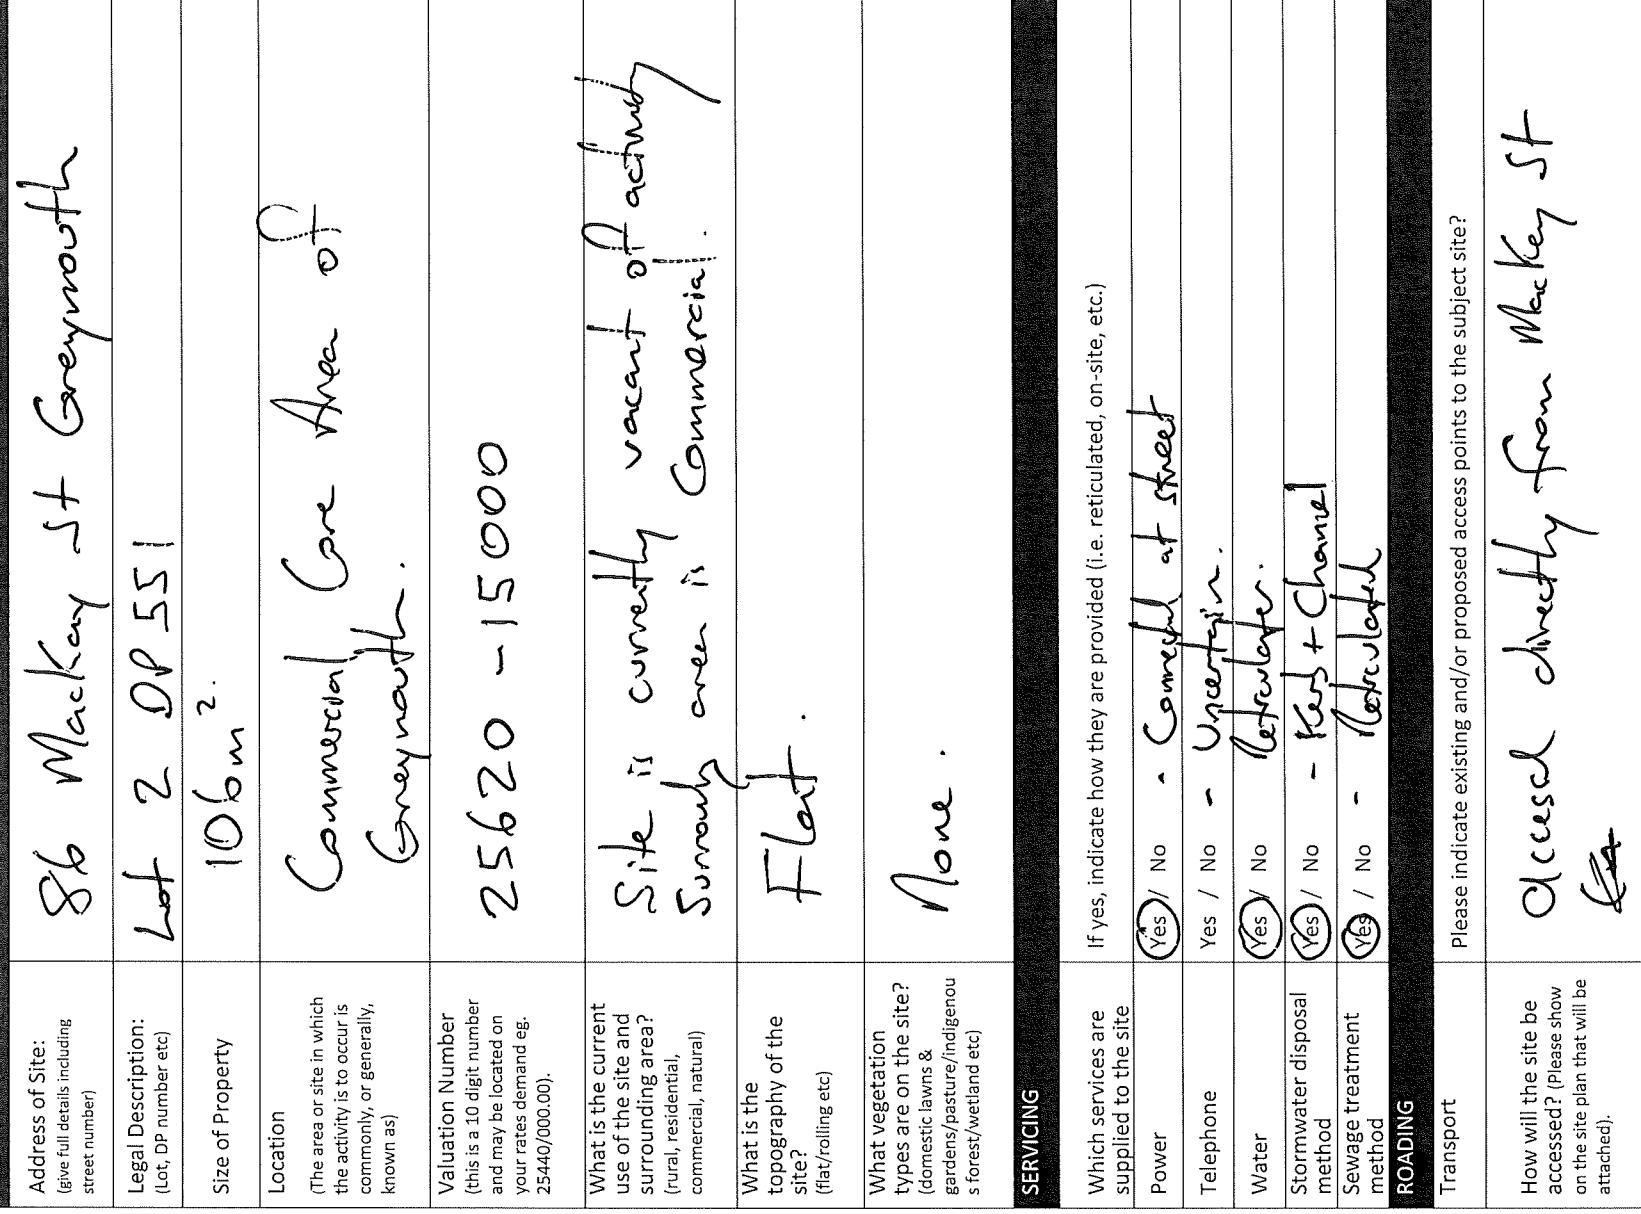 Address of Site:
(give full details including
street number)
86 Mackay St Greymouth
Legal Description:
(Lot, DP number etc)
Lot 2 DP 551
Size of Property
106m².
Location
(The area or site in which
the activity is to occur is
commonly, or generally,
known as)
Commercial Core Area of
Greymouth.
Valuation Number
(this is a 10 digit number
and may be located on
your rates demand eg.
25440/000.00).
25620 - 15000
What is the current
use of the site and
surrounding area?
(rural, residential,
commercial, natural)
Site is currently vacant of activity
Surroundg area is Commercial.
What is the
topography of the
site?
(flat/rolling etc)
Flat.
What vegetation
types are on the site?
(domestic lawns &
gardens/pasture/indigenou
s forest/wetland etc)
None.
SERVICING
Which services are
supplied to the site
If yes, indicate how they are provided (i.e. reticulated, on-site, etc.)
Power
Yes / No - Connected at street
Telephone
Yes / No - Uncertain.
Water
Yes / No Reticulated.
Stormwater disposal
method
Yes / No - Kerb + Channel
Sewage treatment
method
Yes / No - Reticulated
ROADING
Transport
Please indicate existing and/or proposed access points to the subject site?
How will the site be
accessed? (Please show
on the site plan that will be
attached).
Accessed directly from Mackay St